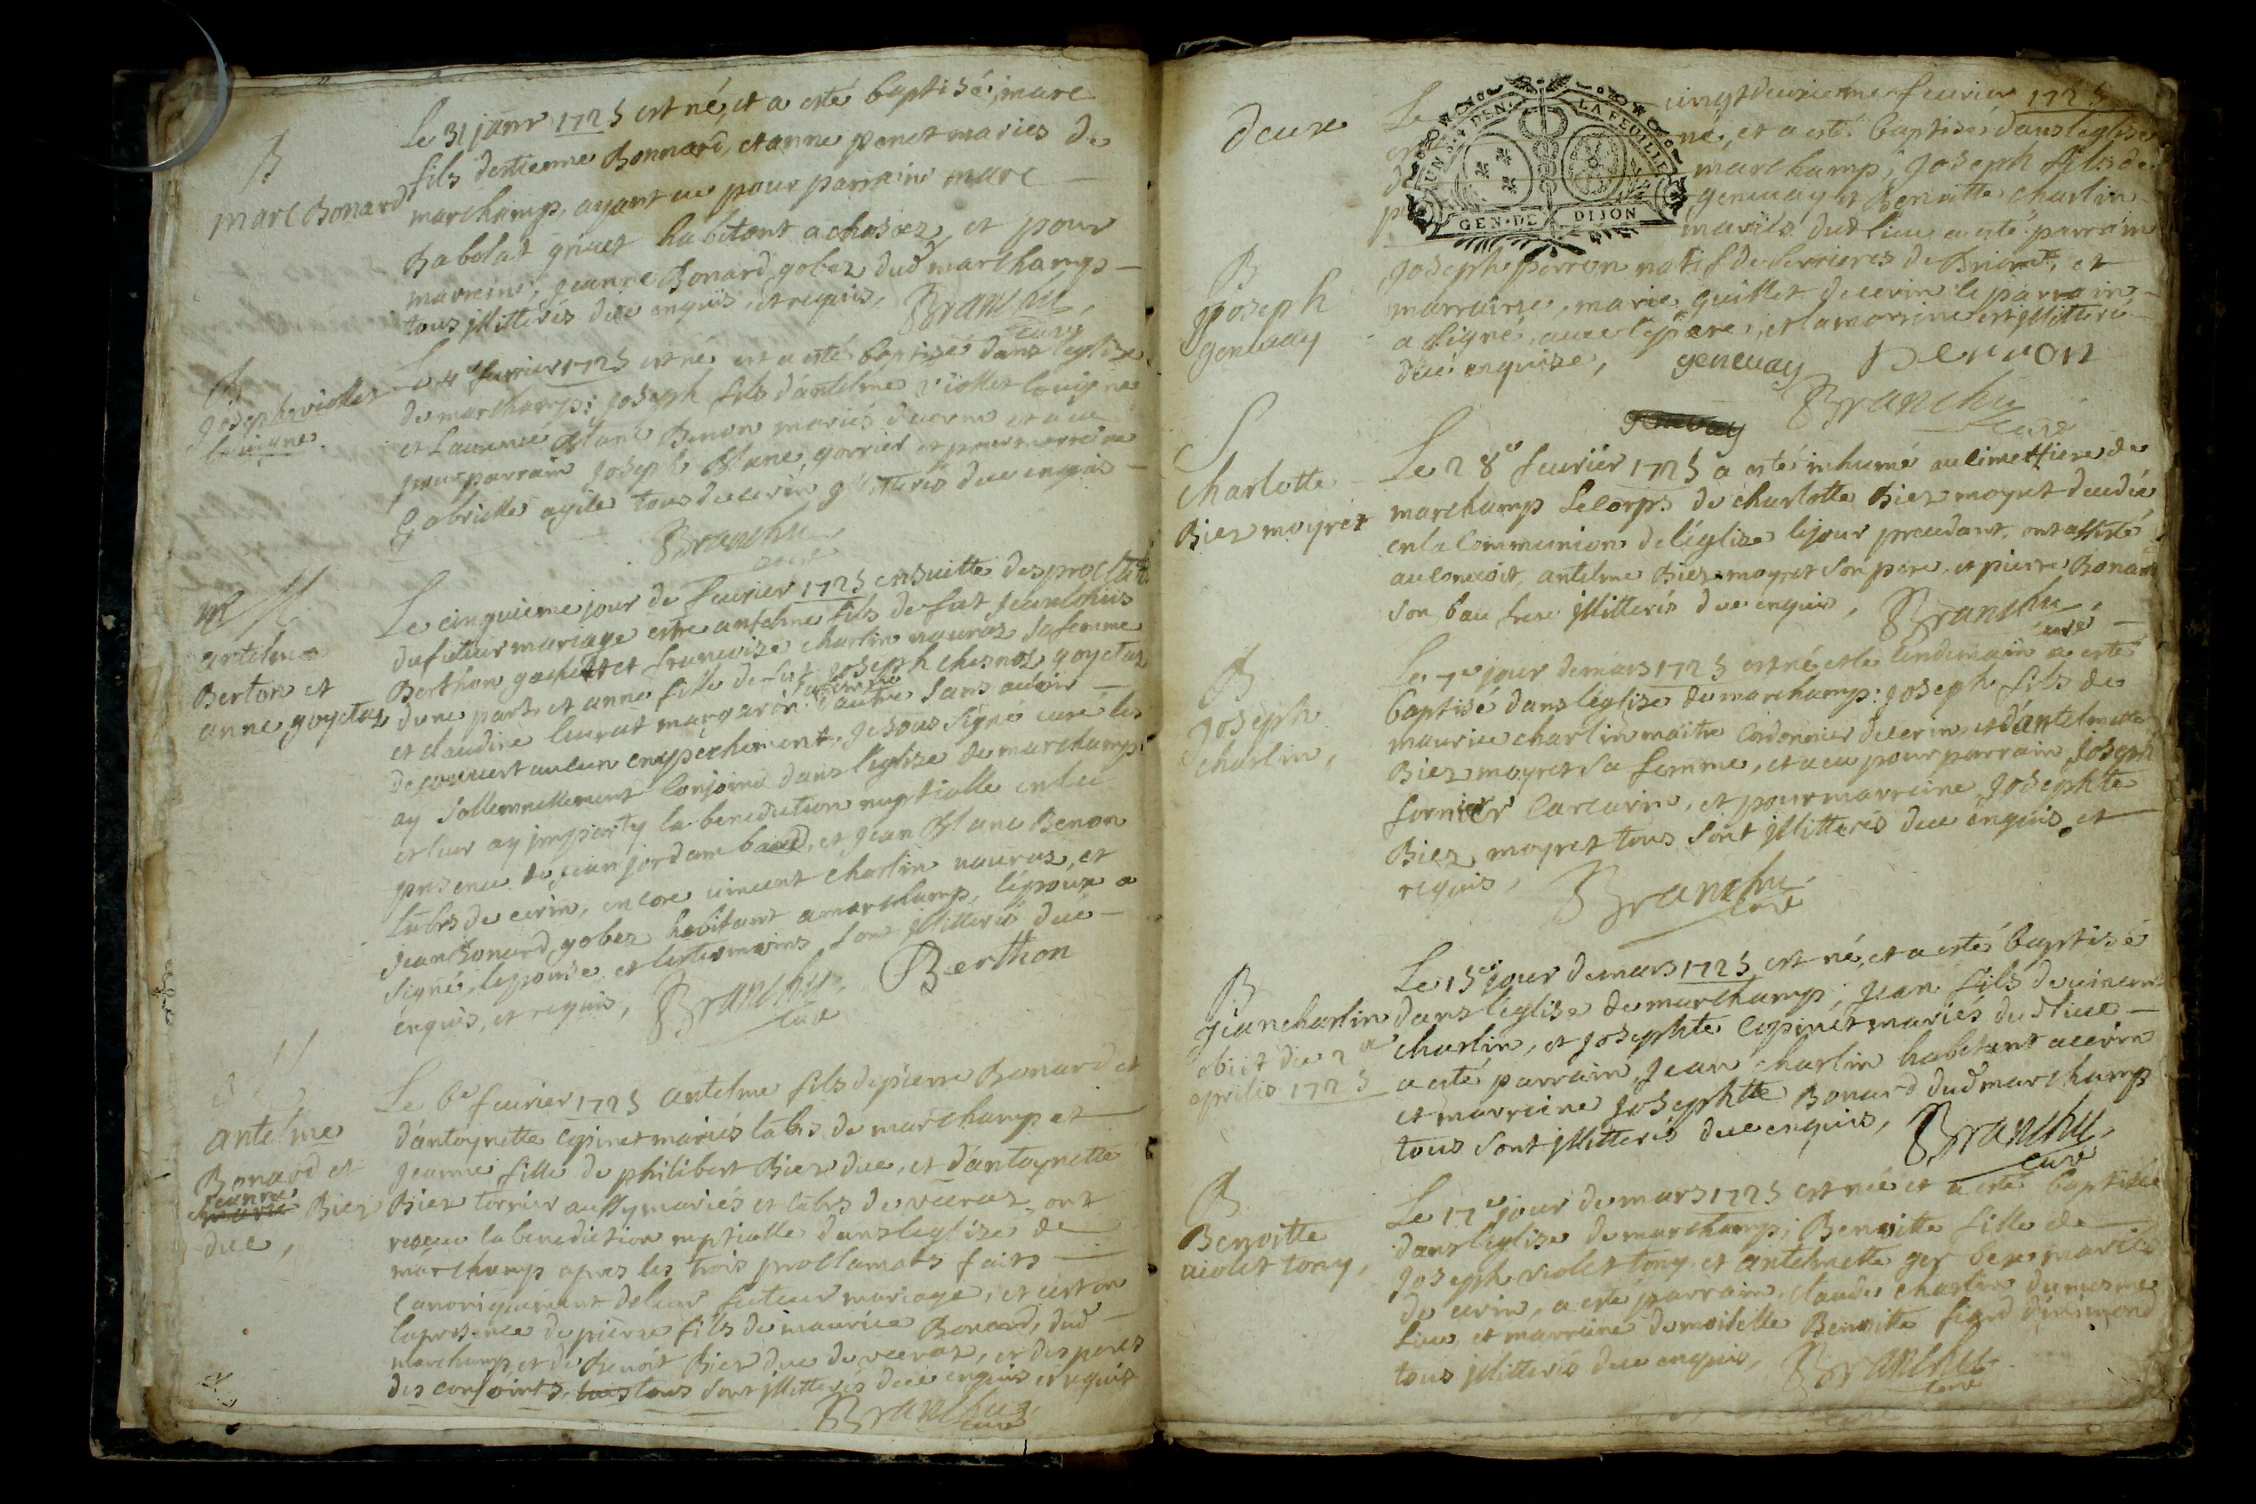 B
marc Bonard
Le 31 janr 1725 est né, et a esté baptisé, marc
fils destienne Bonnard, et anne penet mariés de
marchamp, ayant eu pour parrain marc
Babolat habitant a et pour
marreine, jeanne Bonard gobez dud marchamp
tous illitterés düe enquis, et requis, Branchu,
curé
B
joseph viollet
louigne
Le 4e fevrier 1725 est né et a esté baptisé dans leglise
de marchamp: joseph fils dantelme viollet louigne
et Laurence Blanc Benon mariés de cerin et a eu
pour parrain joseph Blanc, gorrier et pour marreine
Gabrielle tous de cerin illitterés düe enquis
Branchu
curé
M
antelme
Berton et
anne goyetaz
Le cinquieme jour de fevrier 1725 ensuitte des proclam
du futur mariage entre antelme fils de fut jean louis
Berthon gachet et francoise charlin nauraz sa femme
dune part, et anne fille de fut joseph chesnoz goyetaz
et claudine lieurat sa femme dautre sans avoir
decouvert aucun empechement, je sous signé curé les
ay sollemnellement conjoint dans l'eglise de marchamp
et leur ay imparty la benediction nuptialle en la
presence de jean jordam et jean Blanc Benon
labrs de cerin, encore vincent charlin nauraz, et
jean Bonard gobez habitant a marchamp, lépoux a
signé, lepouse et les temoins sont illitterés düe
enquis, et requis, Branchu, Berthon
curé
M
antelme
Bonard et
jeanne
Biez
due,
Le 6e fevrier 1725 antelme fils de pierre Bonard et
d'antoynette copinet mariés labrs de marchamp et
jeanne fille de philibert Biez due, et d'antoynette
Biez terrier aussy mariés et labrs de veeraz, ont
receu la benediction nuptialle dans leglise de
marchamp apres les trois proclamats faits
canoniquement de leur futeur mariage, et c'est en
la presence de pierre fils de maurice Bonard, dud
marchamp, et de Benoit Biez due de veeraz, et des peres
des conjoints, tous sont illitterés düe enquis et requis
Branchu
curé
deuxe
GEN·DE DIJON
LA FEUILLE
Le vingt deuxieme fevrier 1725
est né, et a esté baptisé dans l'eglise
de marchamp, joseph fils de
genevay et Benoitte charlin
mariés dud lieu a esté parrain
B
joseph
genevay
joseph perron natif de serrieres de Briord, et
marrainne, marie guillet de cerin le parrain
a signé, avec le pere, et la marrine est illitteré
düe enquise, genevay Perron
Branchu
curé
S
Charlotte
Biez moyret
Le 28e fevrier 1725 a esté inhumé au cimettiere de
marchamp le corps de charlotte Biez moyret decedée
en la communion de l'église le jour precedant, ont assisté
au convoit, antelme Biez moyret son pere, et pierre Bonard
son beau frere illitterés düe enquis, Branchu,
curé
B
joseph
charlin,
Le 7e jour de mars 1725 est né et le lendemain a esté
baptisé dans léglise de marchamp: joseph fils de
maurice charlin maitre cordonnier de cerin et d'antelmette
Biez moyret sa femme, et a eu pour parrain joseph
fornier carcarin, et pour marreine josephte
Biez moyret tous sont illitterés düe enquis, et
requis, Branchu,
curé
B
jean charlin
obiit die 2a
aprilis 1725
Le 15e jour de mars 1725 est né, et a esté baptisé
dans léglise de marchamp; jean fils de vincent
charlin, et josephte copinet mariés dud lieu
a esté parrain, jean charlin habitant a cerin
et marreine josephtte Bonard dud marchamp
tous sont illitterés düe enquis, Branchu,
curé
B
Benoitte
violet tony,
Le 17e jour de mars 1725 est née et a esté baptisée
dans leglise de marchamp; Benoitte fille de
joseph violet tony et antelmette mariés
de cerin, a esté parrain, claude charlin du mesme
lieu et marreine demoiselle Benoitte
tous illitterés düe enquis, Branchu
curé